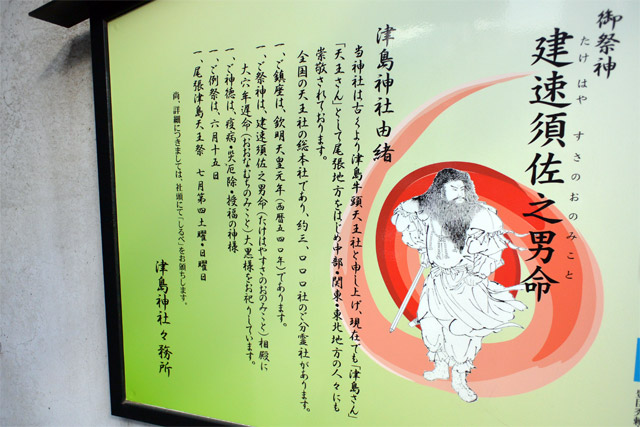 御祭神
建速須佐之男命
たけ はや すさのおのみこと
津島神社由緒
当神社は古くより津島牛頭天王社と申し上げ、現在でも「津島さん」
「天王さん」として尾張地方をはじめ中部・関東・東北地方の人々にも
崇敬されております。
全国の天王社の総本社であり、約三、〇〇〇社のご分霊社があります。
一、ご鎮座は、欽明天皇元年(西暦五四〇年)であります。
一、ご祭神は、建速須佐之男命(たけはやすさのおのみこと)相殿に
大穴牟遅命(おおなむちのみこと)大黒様をお祀りしています。
一、ご神徳は、疫病・災厄除・授福の神様
一、ご例祭は、六月十五日
一 尾張津島天王祭 七月第四土曜・日曜日
尚、詳細につきましては、社頭にて「しるべ」をお頒ちします。
津島神社々務所